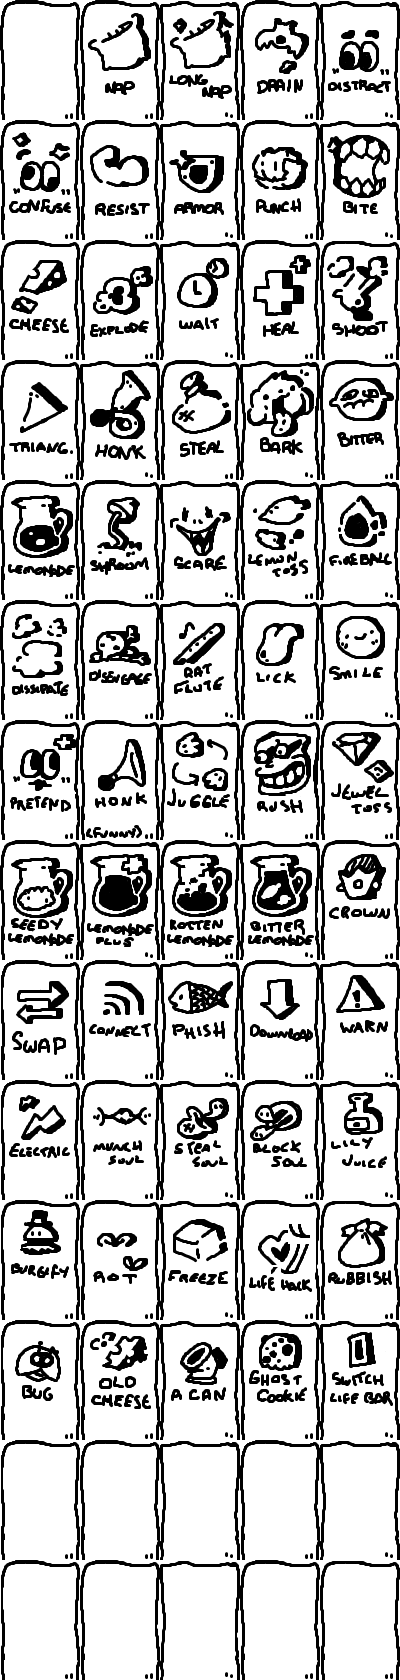 NAP
LONG NAP
DRAIN
DISTRACT
CONFUSE
RESIST
ARMOR
PUNCH
BITE
CHEESE
EXPLODE
WAIT
HEAL
SHOOT
TRIANG.
HONK
STEAL
BARK
BITTER
LEMONADE
SHROOM
SCARE
LEMON
TOSS
FIREBALL
DISSIPATE
DISENGAGE
RAT
FLUTE
LICK
SMILE
PRETEND
HONK
(FUNNY)
JUGGLE
RUSH
JEWEL
TOSS
SEEDY
LEMONADE
LEMONADE
PLUS
ROTTEN
LEMONADE
BITTER
LEMONADE
CROWN
SWAP
CONNECT
PHISH
DOWNLOAD
WARN
ELECTRIC
MUNCH
SOUL
STEAL
SOUL
BLOCK
SOUL
LILY
JUICE
BURGIFY
ROT
FREEZE
LIFE HACK
RUBBISH
BUG
OLD
CHEESE
A CAN
GHOST
COOKIE
SWITCH
LIFE BAR